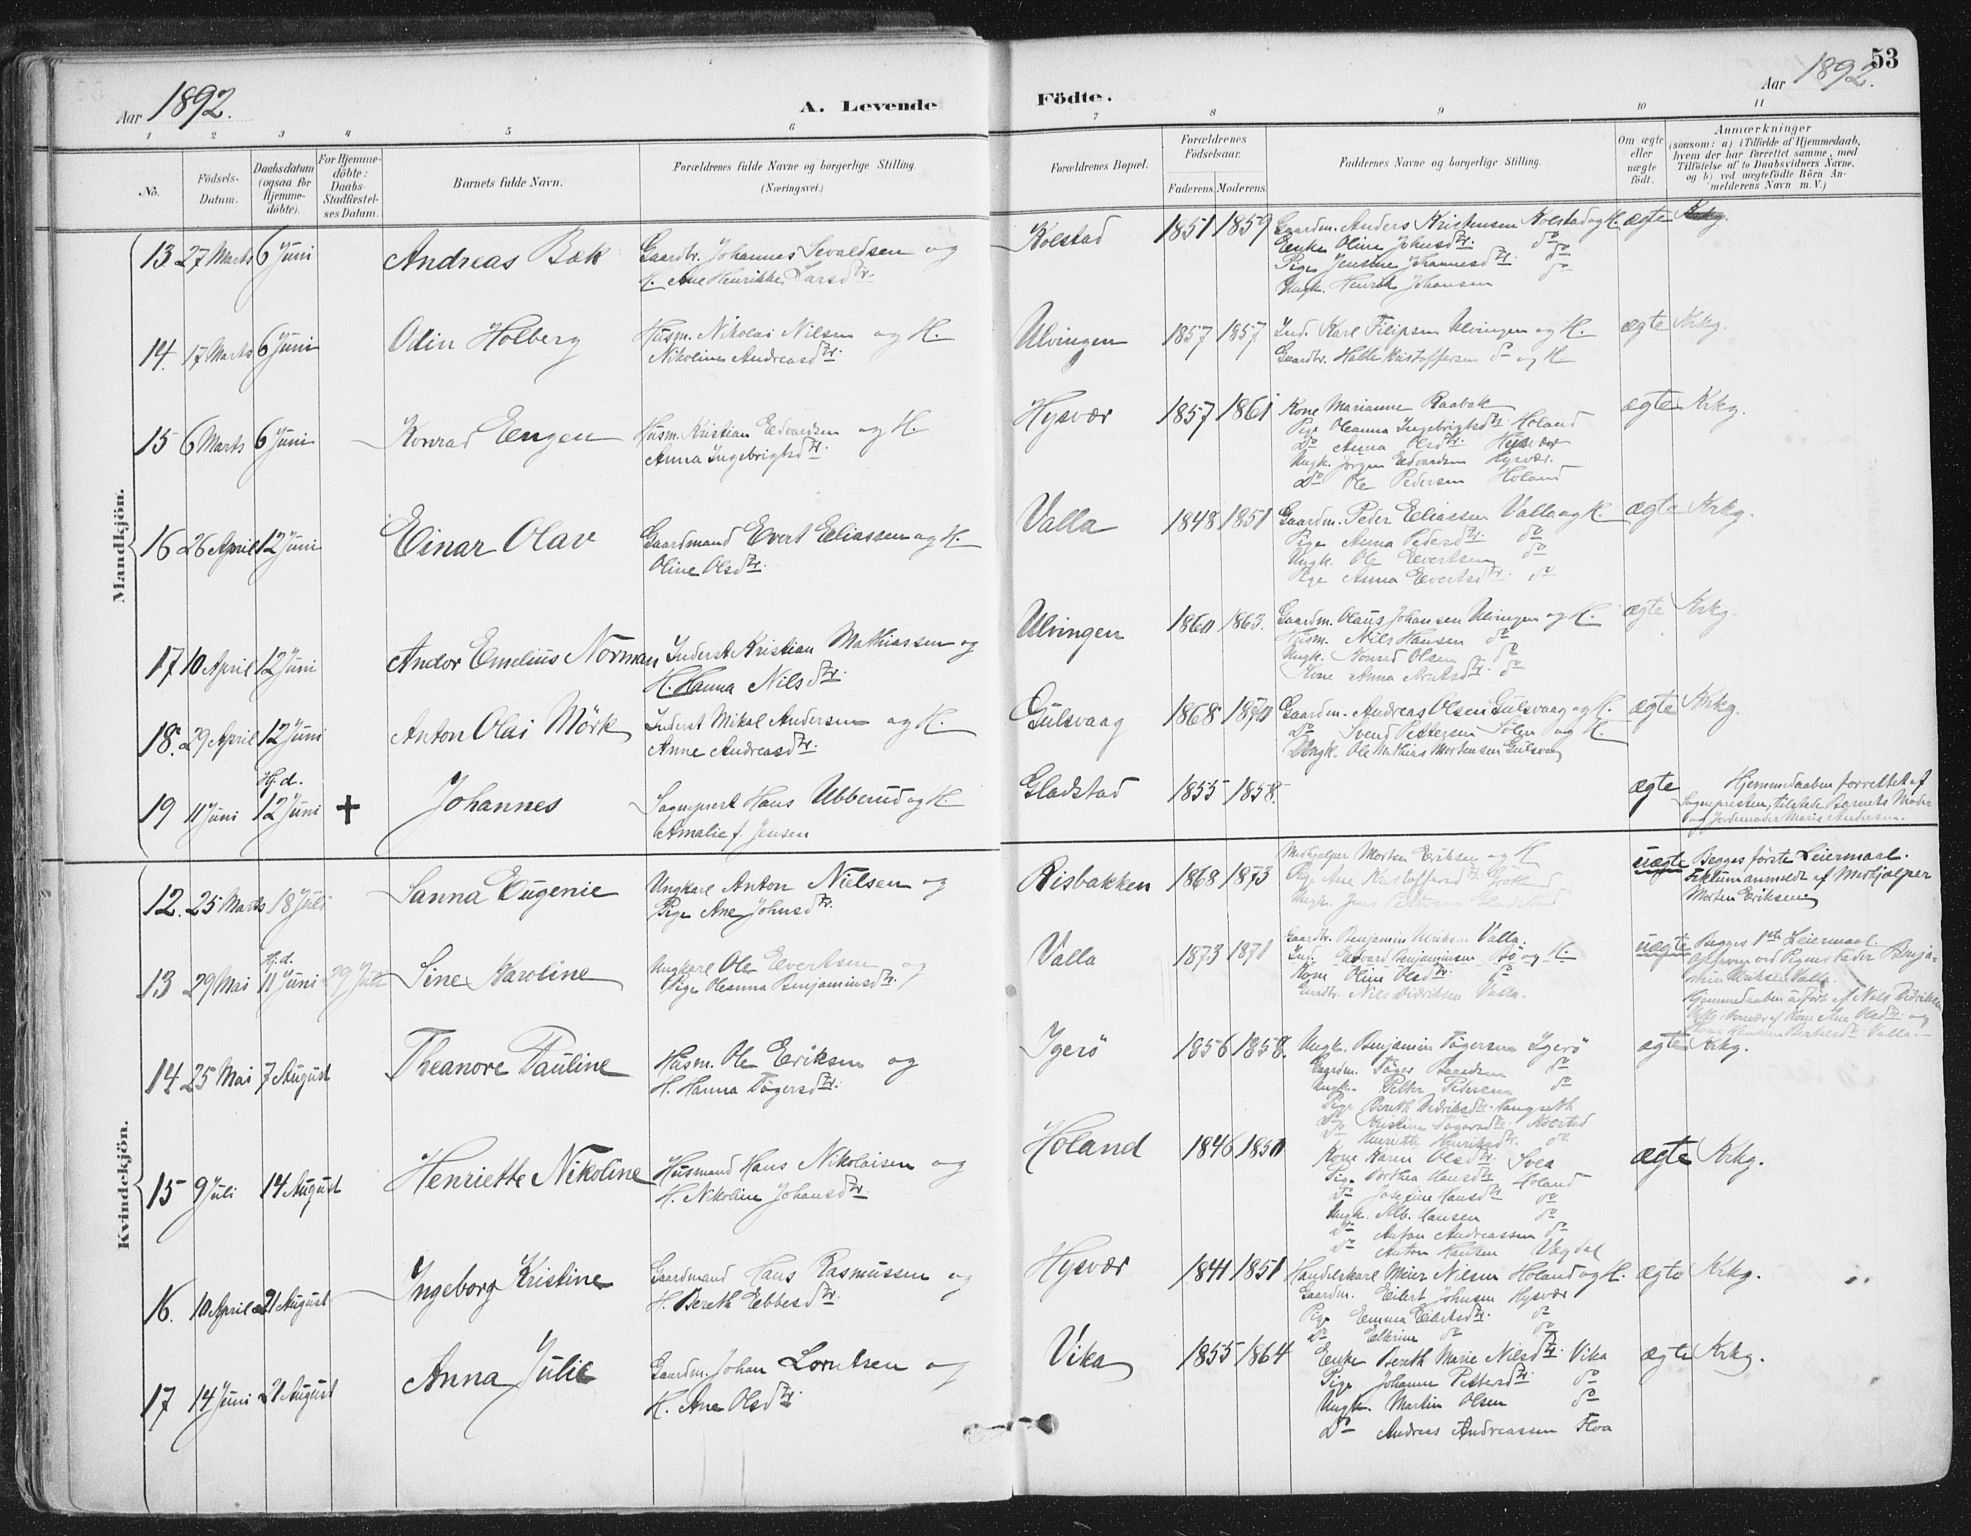 Aar 1892.
A. Levende
Födte.
Aar 1892.
53
1 2 3 4 5 6 7 8 9 10 11
No.
Födsels-Datum.
Daabsdatum (ogsaa for Hjemme-döbte).
For Hjemme-döbte: Daabs-Stadfæstel-ses Datum.
Barnets fulde Navn.
Forældrenes fulde Navne og borgerlige Stilling. (Næringsvei.)
Forældrenes Bopæl.
Forældrenes Födselsaar.
Faderens. Moderens.
Faddernes Navne og borgerlige Stilling.
Om ægte eller uægte födt.
Anmærkninger
(saasom: a) i Tilfælde af Hjemmedaab,
hvem der har forrettet samme, med
Tilföielse af to Daabsvidners Navne,
og b) ved uægtefödte Börn An-
melderens Navn m. V.)
Mandkjön.
13 27 Marts 6 Juni Andreas Bæk Gaardbr. Johannes Sevaldsen og
H. Ane Henrikke Larsdtr.
Kolstad 1851 1859 Gaardm. Anders Kristensen Kolstad og H. ægte Krkg.
Enke Oline Johnsdtr. do
Pige Jensine Johannesdtr. do
Ungk. Henrik Johansen do
14. 17 Marts 6 Juni Odin Holberg Husm. Nikolai Nilsen og H.
Nikoline Andreasdtr.
Ulvingen 1857 1857 Ind. Karl Filipsen Ulvingen og H. ægte Krkg.
Gaardbr. Halle Kristoffersen do og H
15 6 Marts 6 Juni Konrad Engen Husm. Kristian Edvardsen og H.
Anna Ingebrigtsdtr.
Hysvær 1857 1861 Kone Marianne Raabak ægte Krkg.
Pige Oleanna Ingebrigtsdtr. Holand
Do Anna Olsdtr. Hysvær
Ungk. Jörgen Edvardsen Hysvær.
Do Ole Pedersen Holand
16 26 April 12 Juni Einar Olav Gaardmand Evert Eliassen og H.
Oline Olsdtr.
Valla 1848 1851 Gaardm. Peder Eliassen Valla og H. ægte Krkg.
Pige Anna Pedersdtr. do
Ungk. Ole Evertsen do
Pige Anna Evertsdtr. do
17 10 April 12 Juni Andor Emelius Norman Inderst Kristian Mathiassen og
H. Hanna Nilsdtr.
Ulvingen 1860 1863. Gaardm. Olaus Johansen Ulvingen og H. ægte Krkg.
Husm. Nils Hansen do
Ungk. Konrad Olsen do
Kone Anna do
18. 29 April 12 Juni Anton Olai Mörk Inderst Mikal Andersen og H.
Anne Andreasdtr.
Gulsvaag 1868 1870 Gaardm. Andreas Olsen Gulsvaag og H. ægte Krkg.
Do Svend Pettersen Sölen og H.
Ungk. Ole Mathias Mortensen Gulsvaag
19 11 Juni Hj. d. 12 Juni + Johannes Sogneprest Hans Ubberud og H.
Amalie f. Jensen
Gladstad 1855 1858. ægte Hjemmedaaben forrettet af
Sognepresten, tilstede Barnets Moder
og Jordemoder Marie Andersen.
Kvindekjön.
12. 25 Marts 18 Juli Sanna Eugenie Ungkarl Anton Nielsen og
Pige Ane Johnsdtr.
Risbakken 1868 1873 Medhjælper Morten Eriksen og H uægte Begges förste Leiermaal.
Pige Ane Kristoffersdtr.
Ungk. Jens Gladstad
anmeldt af Medhjælper
Morten Eriksen
13 29 Mai Hj. d. 11 Juni 29 Juli Sine Karoline Ungkarl Ole Evertsen og
Pige Oleanna Benjaminsdtr.
Valla 1873 1871 Gaardbr. Benjamin Ulriksen Valla. uægte Begges 1ste Leiermaal.
Ind. Edvard Benjaminsen Bö og H.
Kone Oline Olsdtr. do
Gaardbr. Nils Didriksen Valla.
Opgiven ved Pigens Fader Benja-
min Ulriksen Valla.
Hjemmedaaben udfört af Nils Didriksen
Valla i Nærvær af Kone Ane Olsdtr. og
14 25 Mai 7 August Theanore Pauline Husm. Ole Eriksen og
H. Hanna Tögersdtr.
Igerö 1856 1858. Ungk. Benjamin Tögersen Igerö ægte Krkg.
Gaardm. Töger Baardsen do
Ungk. Petter Pedersen do
Pige Bereth Didriksdtr. Hangseth
Do Kristine Tögersdtr. Kolstad
Do Henriette Henriksdtr. do
15 9 Juli 14 August Henriette Nikoline Husmand Hans Nikolaisen og
H. Nikoline Johansdtr.
Holand 1846 1850 Kone Karen Olsdtr. Svea ægte Krkg.
Pige Dorthea Hansdtr Holand
Do Josefine Hansdtr do
Ungk. Alb. Hansen do
Do Anfon Andreassen do
Do Anton Hansen Vægdal
16. 10 April 21 August Ingeborg Kristine Gaardmand Hans Rasmussen og
H. Bereth Ebbesdtr.
Hysvær 1841 1851 Handelskarl Meier Nilsen Holand og H. ægte Krkg.
Gaardm. Eilert Johnsen Hysvær
Pige Emma Eilertsdtr. do
Do Elbrine do do
17 14 Juni 21 August Anna Julie Gaardm. Johan Lorntsen og
H. Ane Olsdtr.
Vika 1855 1864 Enke Bereth Marie Nilsdtr. Vika ægte Krkg.
Pige Johanne Pettersdtr. do
Ungk. Martin Olsen do
Do Andreas Andreassen Floa